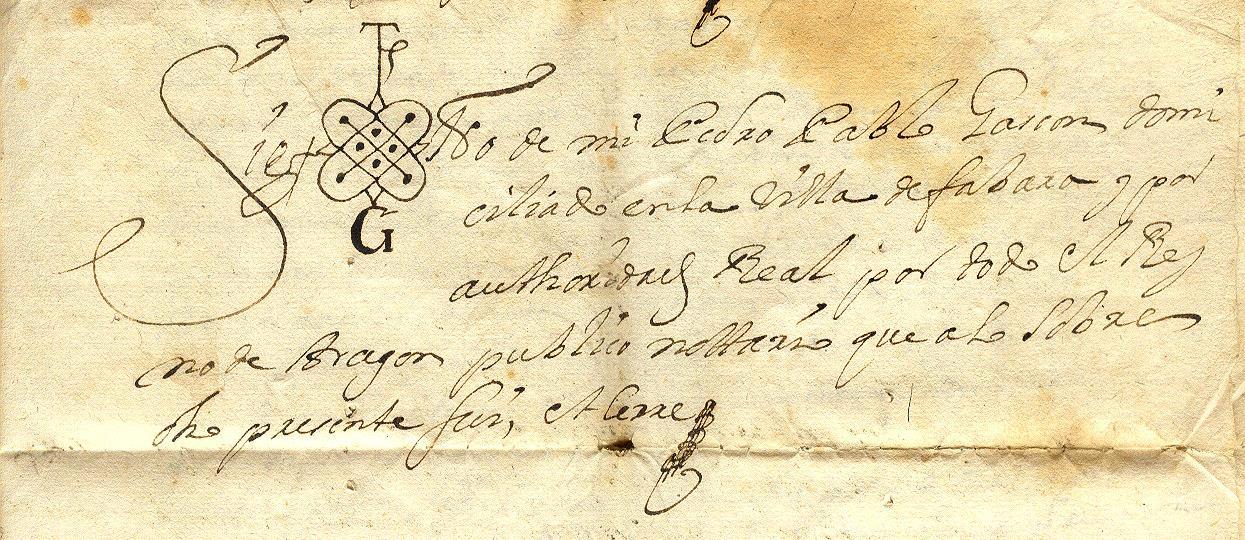 Sig✝no de mi Pedro Pablo Gascon domi
ciliado en la Villa de fabara y por
authoridad Real por todo el Rey
no de Aragon publico nottario que a lo sobre
dho presente fui, et cerre
T
G